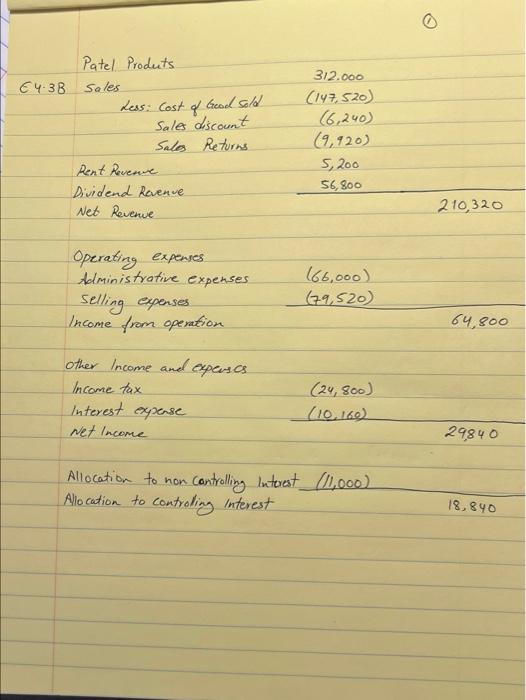 ①
Patel Produts
E4.3B Sales 312.000
Less: Cost of Good Sold (147,520)
Sales discount (6,240)
Sales Returns (9,920)
Rent Revenue 5,200
Dividend Revenue 56,800
Net Revenue 210,320
Operating expenses
Administrative expenses (66,000)
Selling expenses (79,520)
Income from operation 64,800
Other Income and expenses
Income tax (24,800)
Interest expense (10,160)
Net Income 29840
Allocation to non Controlling Interest (11,000)
Allocation to Controling Interest 18,840